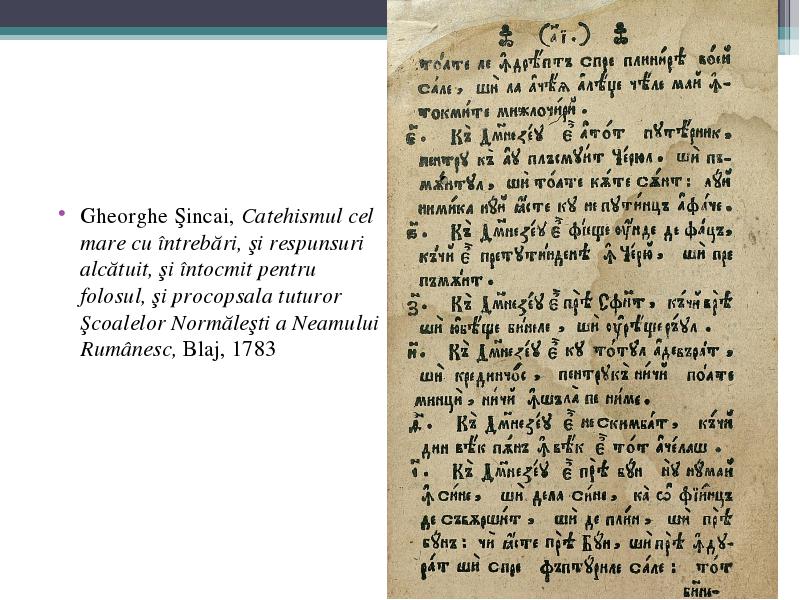 Gheorghe Şincai, Catehismul cel
mare cu întrebări, şi respunsuri
alcătuit, şi întocmit pentru
folosul, şi procopsala tuturor
Şcoalelor Normăleşti a Neamului
Rumânesc, Blaj, 1783
тоате ле ꙟдрѣптъ спре плинирѣ воей
сале, ши ла ачѣꙗ алѣџе чѣле май ꙟ-
токмите мижлочирй.
Къ Дмнезеу є атот путѣрник,
пентру къ ау плъсмуит Чѣрюл. ши пъ-
мѫнтул, ши тоате кѫте сѫнт: луй
нимика нуй ꙗсте ку непутинцъ афаче.
Къ Дмнезеу є фіеще унде де фацъ,
къчи є претутиндене ꙟ Чѣрю, ши пре
пъмѫнт.
Къ Дмнезеу є прѣ Сфнт, къчй врѣ
ши юбѣще бинеле, ши урѣщеръул.
Къ Дмнезеу є ку тотул адевърат,
ши крединчос, пентрукъ ничй поате
минци, ничй ꙟшъла пе ниме.
Къ Дмнезеу є нескимбат, къчй
дин вѣк пѫн ꙟ вѣк є тот ачелаш.
Къ Дмнезеу є прѣ бун ну нумай
ꙟ сине, ши дела сине, ка ѡ фіинцъ
де съвѫршит, ши де плин, ши прѣ
бунъ: чи ꙗсте прѣ Бун, ши прѣ ꙟду-
рат ши спре фъптуриле сале: тот
бине-